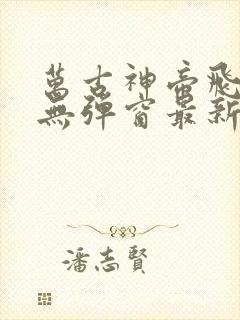 萬古神帝飛
無彈窗最新
潘志賢